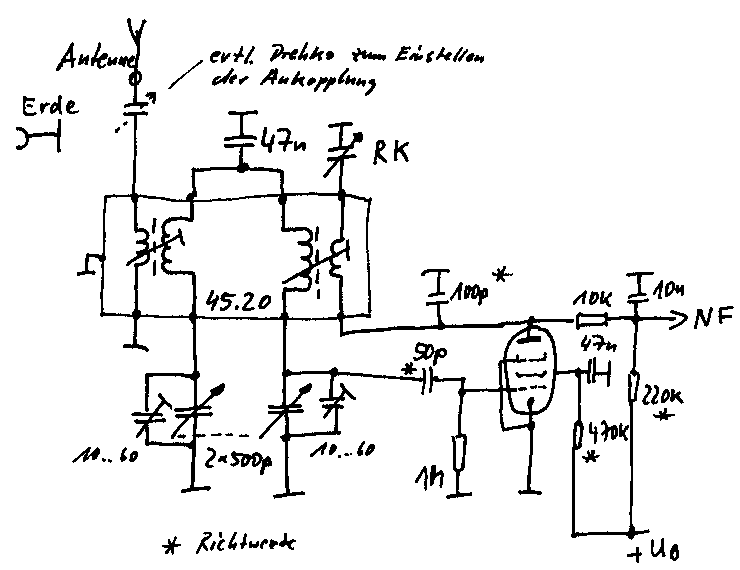 Antenne
evtl. Drehko zum Einstellen
der Ankopplung
Erde
47n
RK
45.20
100p *
10k
10n
NF
50p
*
47n
220k
*
470k
*
10...60
2x500p
10...60
1M
+U0
* Richtwerte